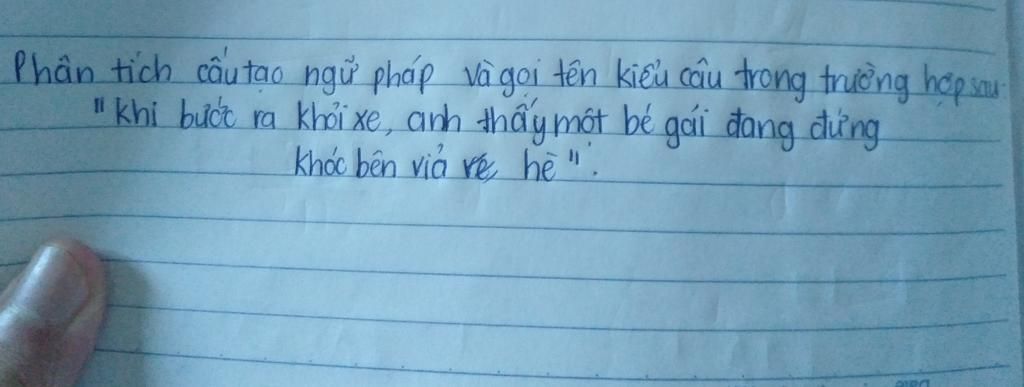 Phân tích cấu tạo ngữ pháp và gọi tên kiểu câu trong trường hợp sau
"Khi bước ra khỏi xe, anh thấy một bé gái đang đứng
khóc bên vỉa hè".